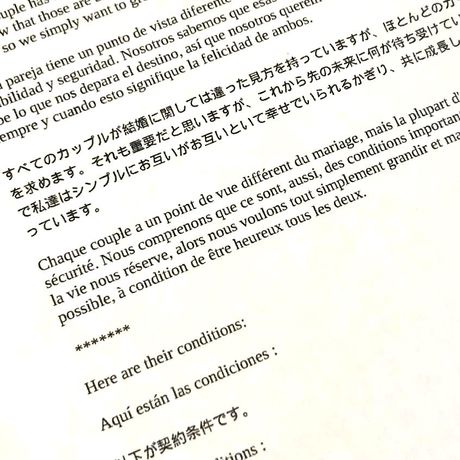 uple has
w that those are
so we simply want to gr
pareja tiene un punto de vista diferente
bilidad y seguridad. Nosotros sabemos que esas
be lo que nos depara el destino, así que nosotros querem
empre y cuando esto signifique la felicidad de ambos.
すべてのカップルが結婚に関しては違った見方を持っていますが、ほとんどのカ
を求めます。それも重要だと思いますが、これから先の未来に何が待ち受けてい
で私達はシンプルにお互いがお互いといて幸せでいられるかぎり、共に成長し
っています。
Chaque couple a un point de vue différent du mariage, mais la plupart d'
sécurité. Nous comprenons que ce sont, aussi, des conditions important
la vie nous réserve, alors nous voulons tout simplement grandir et ma
possible, à condition de être heureux tous les deux.
*******
Here are their conditions:
Aquí están las condiciones :
以下が契約条件です。
ditions :